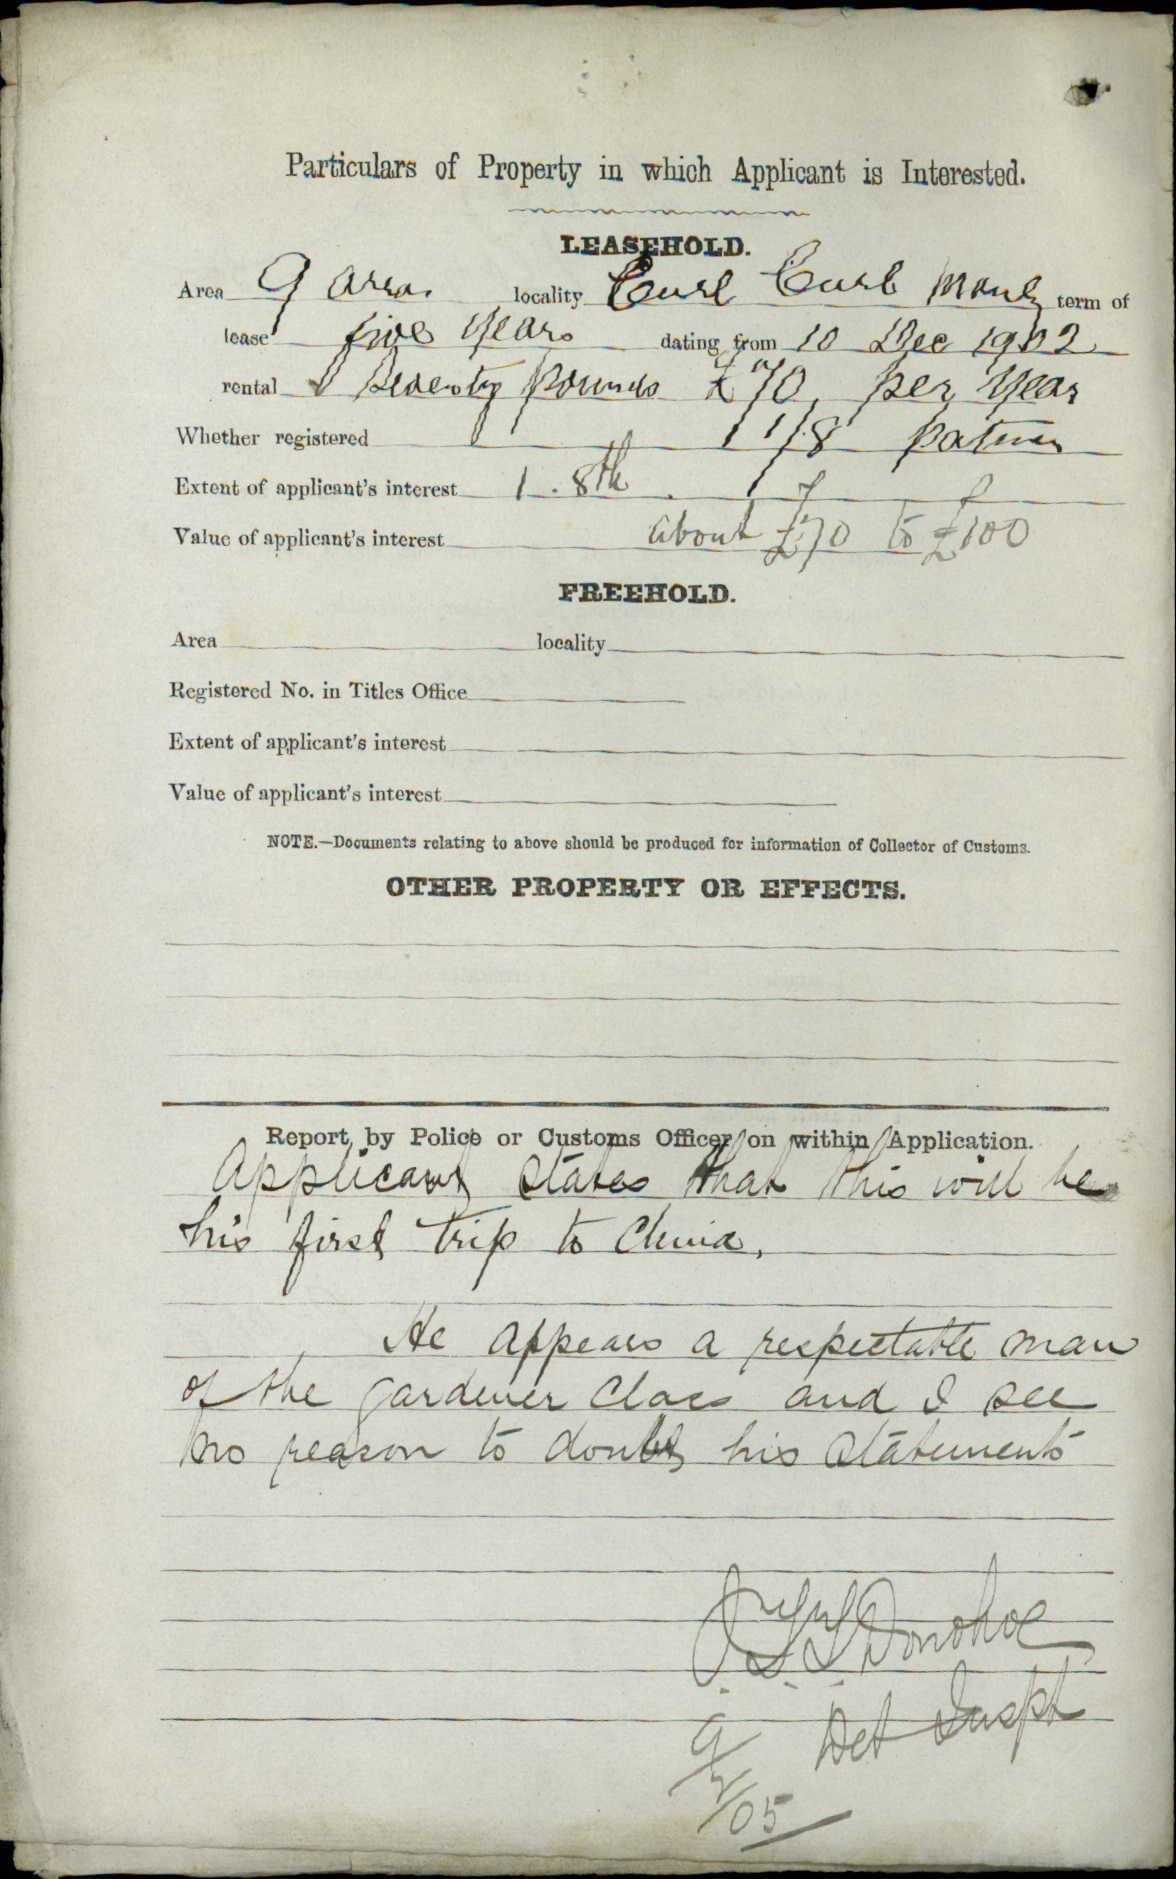 Particulars of Property in which Applicant is Interested.
LEASEHOLD.
Area 9 acres locality Curl Curl Manly term of
lease five years dating from 10 Dec 1902
rental Seventy Pounds £70 per year
Whether registered 1/8
Extent of applicant's interest 1.8th
Value of applicant's interest about £70 to £100
FREEHOLD.
Area locality
Registered No. in Titles Office
Extent of applicant's interest
Value of applicant's interest
NOTE.—Documents relating to above should be produced for information of Collector of Customs.
OTHER PROPERTY OR EFFECTS.
Report by Police or Customs Officer on within Application.
Applicant states that this will be
his first trip to China.
He appears a respectable man
of the gardener class and I see
no reason to doubt his statements
Donohoe
Det Inspt
/05